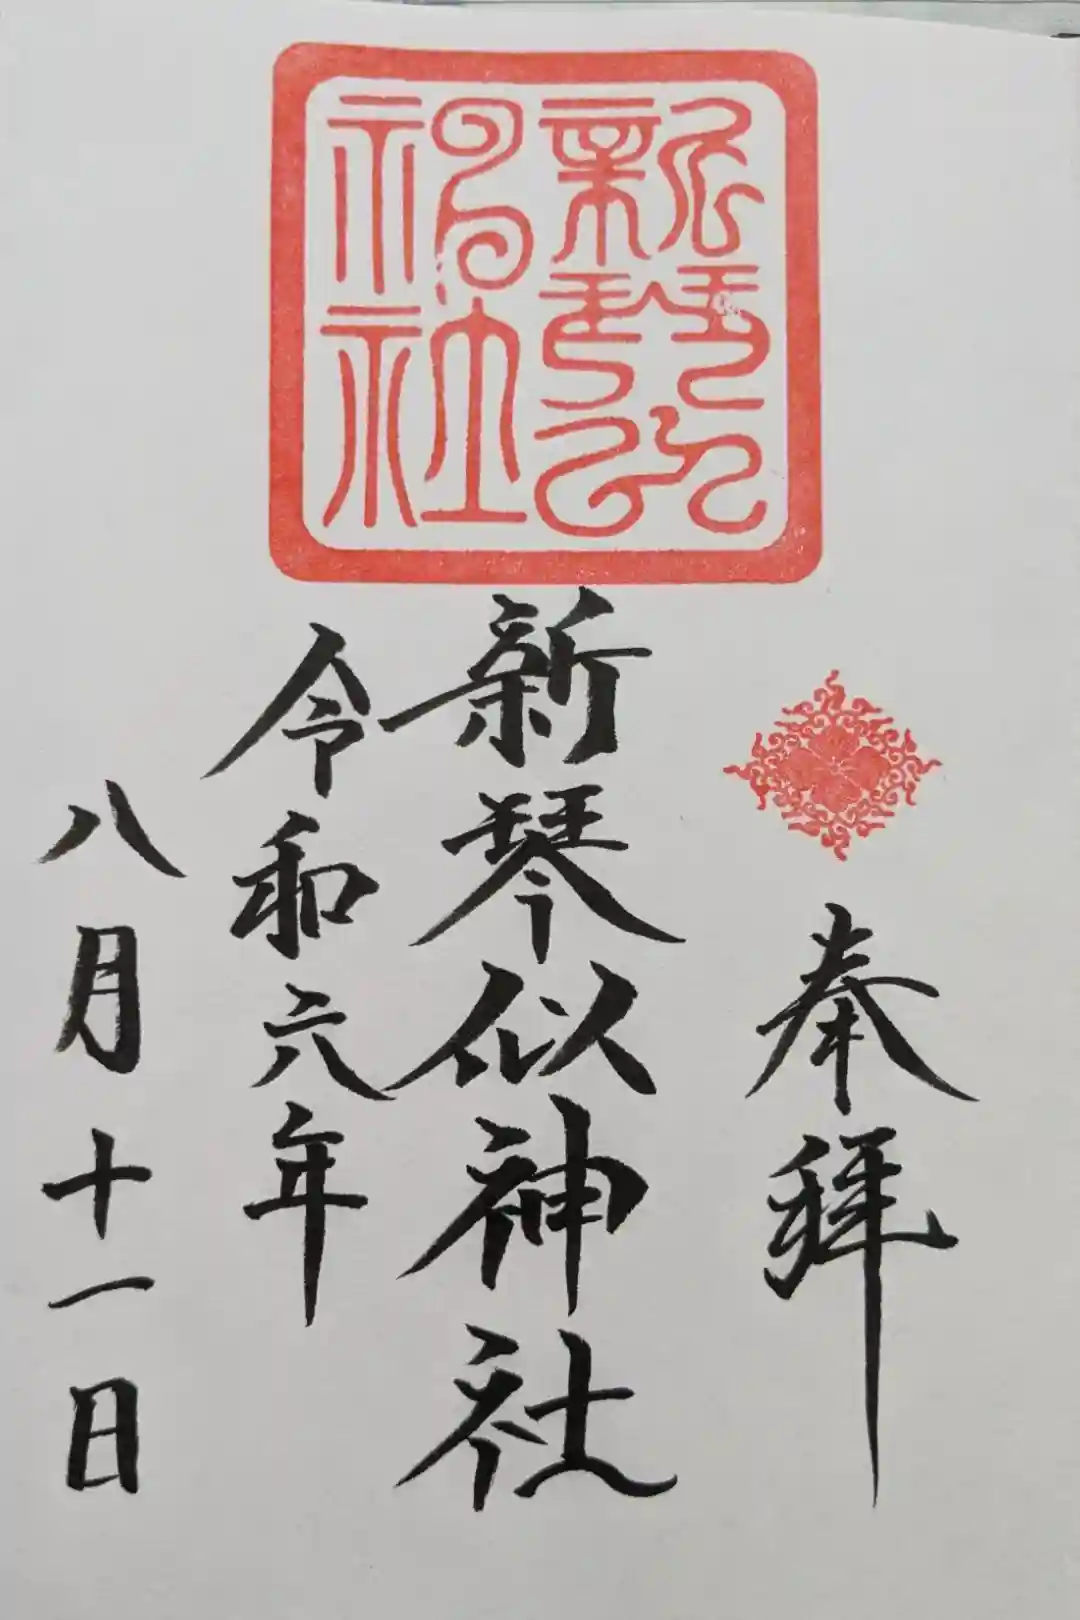 新琴似
神社
奉拝
新琴似神社
令和六年
八月十一日